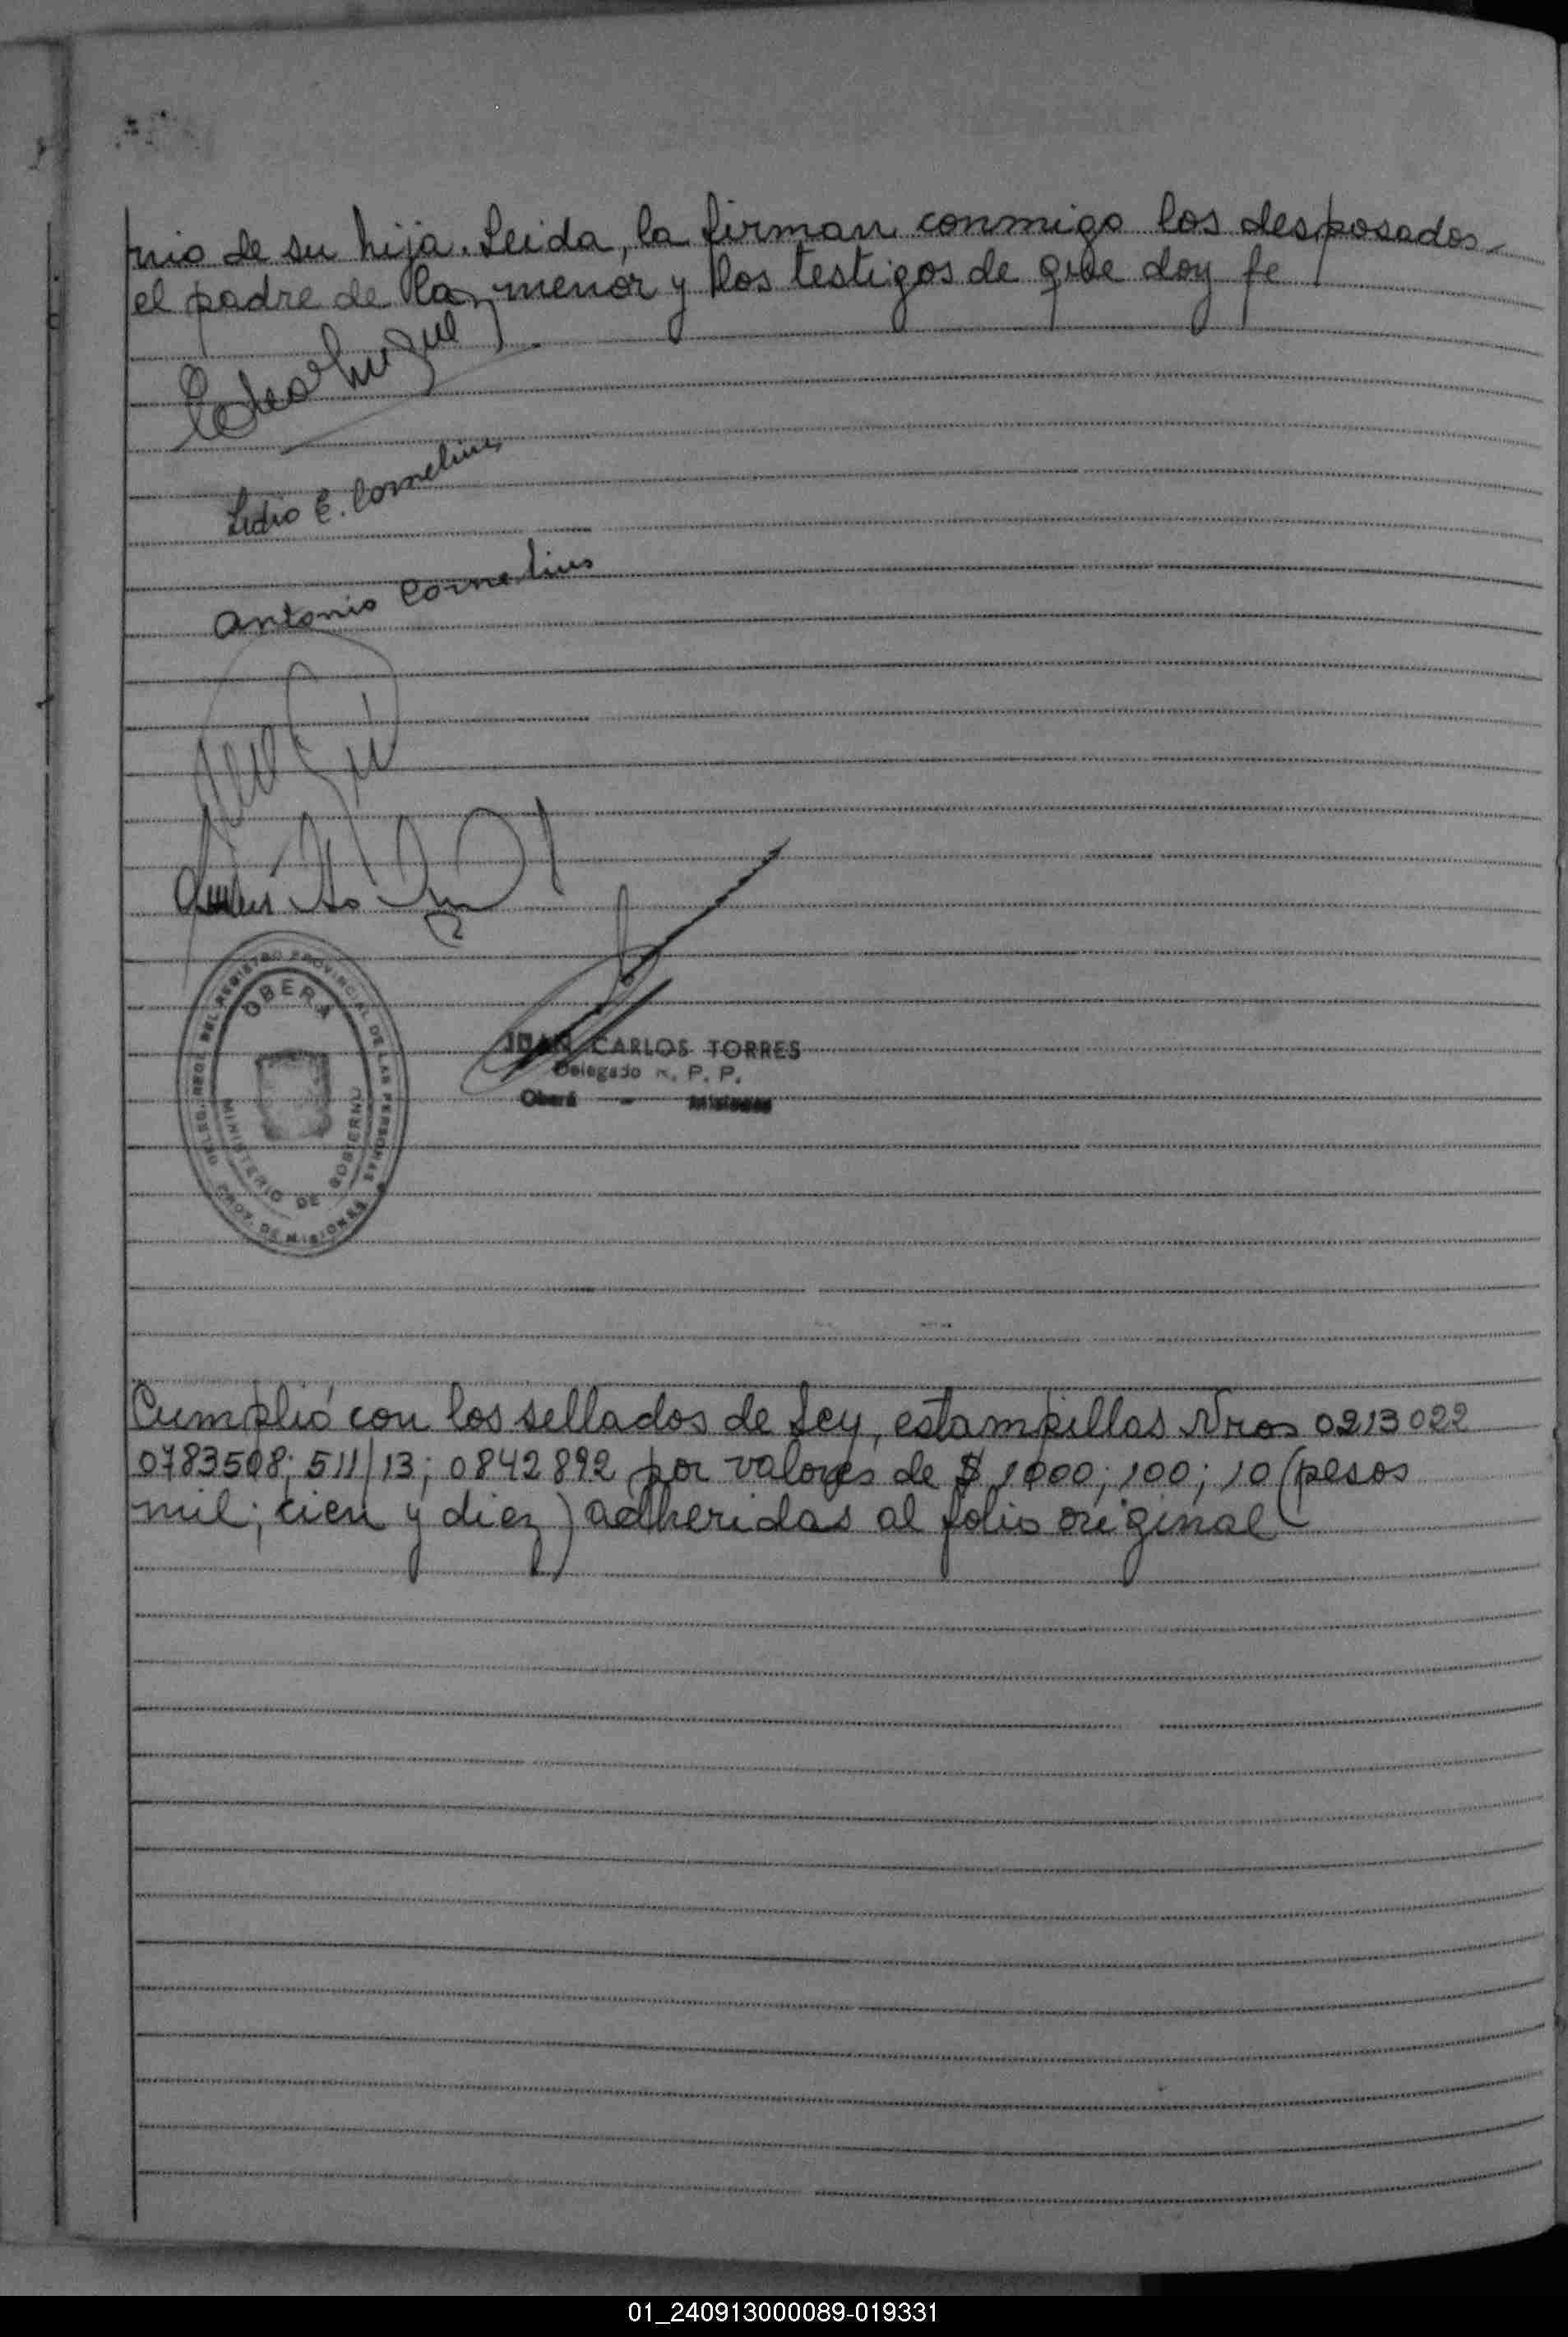 nio de su hija. Leida, la firman conmigo los desposados,
el padre de la menor y los testigos de que doy fe
Lidio E. Cornelius
Antonio Cornelius
DELEG. REGI. DEL REGISTRO PROVINCIAL DE LAS PERSONAS
OBERA
MINISTERIO DE GOBIERNO
PROV. DE MISIONES
JUAN CARLOS TORRES
Delegado R. P. P.
Oberá - Misiones
Cumplió con los sellados de Ley, estampillas Nros 0213022
0783508; 511/13; 0842892 por valores de $ 1000; 100; 10 (pesos
mil; cien y diez) adheridas al folio original
01_240913000089-019331